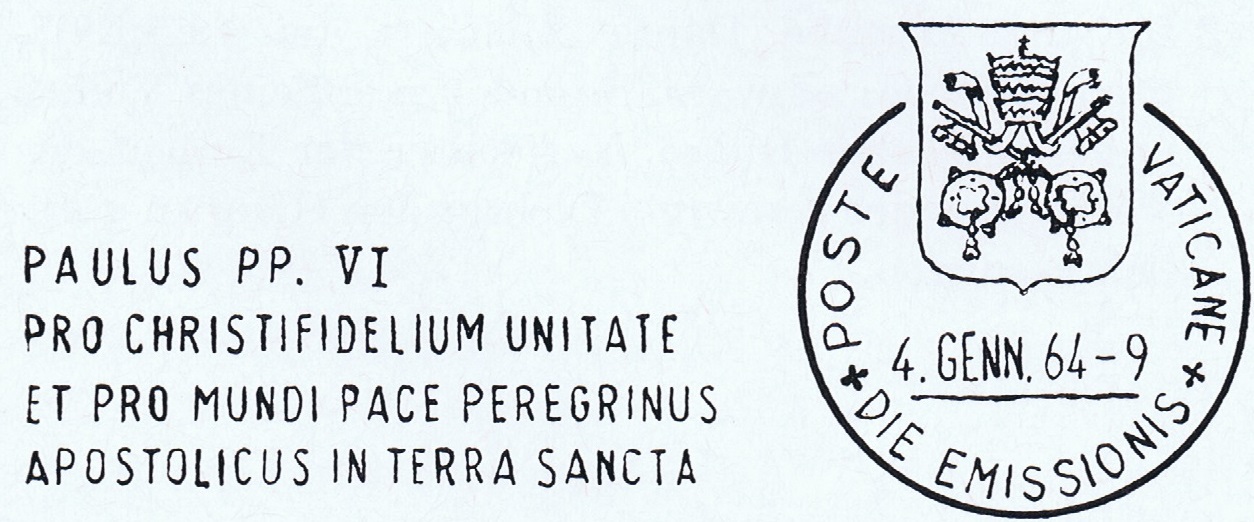 PAULUS PP. VI
PRO CHRISTIFIDELIUM UNITATE
ET PRO MUNDI PACE PEREGRINUS
APOSTOLICUS IN TERRA SANCTA
POSTE VATICANE
4. GENN. 64-9
* DIE EMISSIONIS *